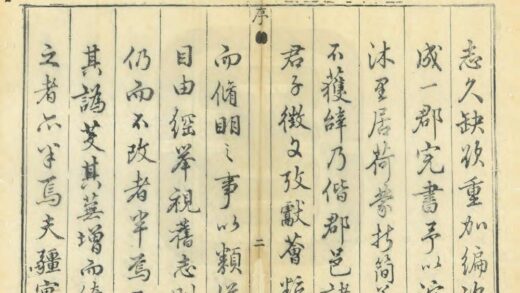 志久缺欲重加編次
成一郡完書予以
沐里居荷蒙折簡
不獲辭乃偕郡邑諸
序
二
君子徵文攷獻薈
而脩明之事以類從
目由綱舉視舊志則
仍而不改者半焉
其譌芟其蕪增而
之者亦半焉夫疆